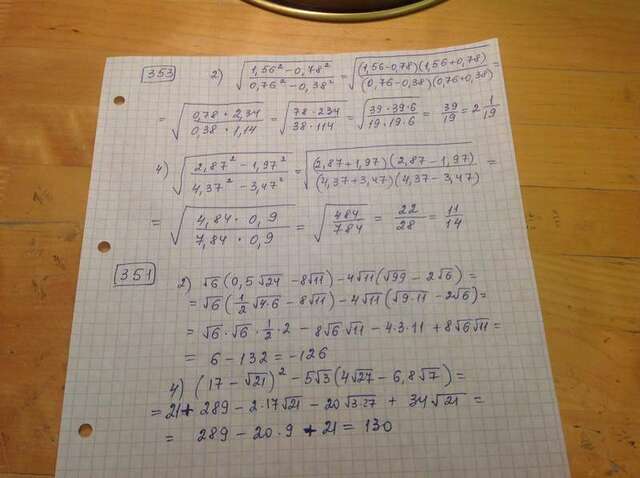 353 2) √((1,56² − 0,78²)/(0,76² − 0,38²)) = √((1,56−0,78)(1,56+0,78)/(0,76−0,38)(0,76+0,38)) =
= √((0,78 · 2,34)/(0,38 · 1,14)) = √((78 · 234)/(38 · 114)) = √((39 · 39 · 6)/(19 · 19 · 6)) = 39/19 = 2 1/19
4) √((2,87² − 1,97²)/(4,37² − 3,47²)) = √((2,87+1,97)(2,87−1,97)/(4,37+3,47)(4,37−3,47)) =
= √((4,84 · 0,9)/(7,84 · 0,9)) = √(484/784) = 22/28 = 11/14
351 2) √6(0,5√24 − 8√11) − 4√11(√99 − 2√6) =
= √6(1/2 √4·6 − 8√11) − 4√11(√9·11 − 2√6) =
= √6 · √6 · 1/2 · 2 − 8√6√11 − 4·3·11 + 8√6√11 =
= 6 − 132 = −126
4) (17 − √21)² − 5√3(4√27 − 6,8√7) =
= 21 + 289 − 2·17√21 − 20√3·27 + 34√21 =
= 289 − 20·9 + 21 = 130